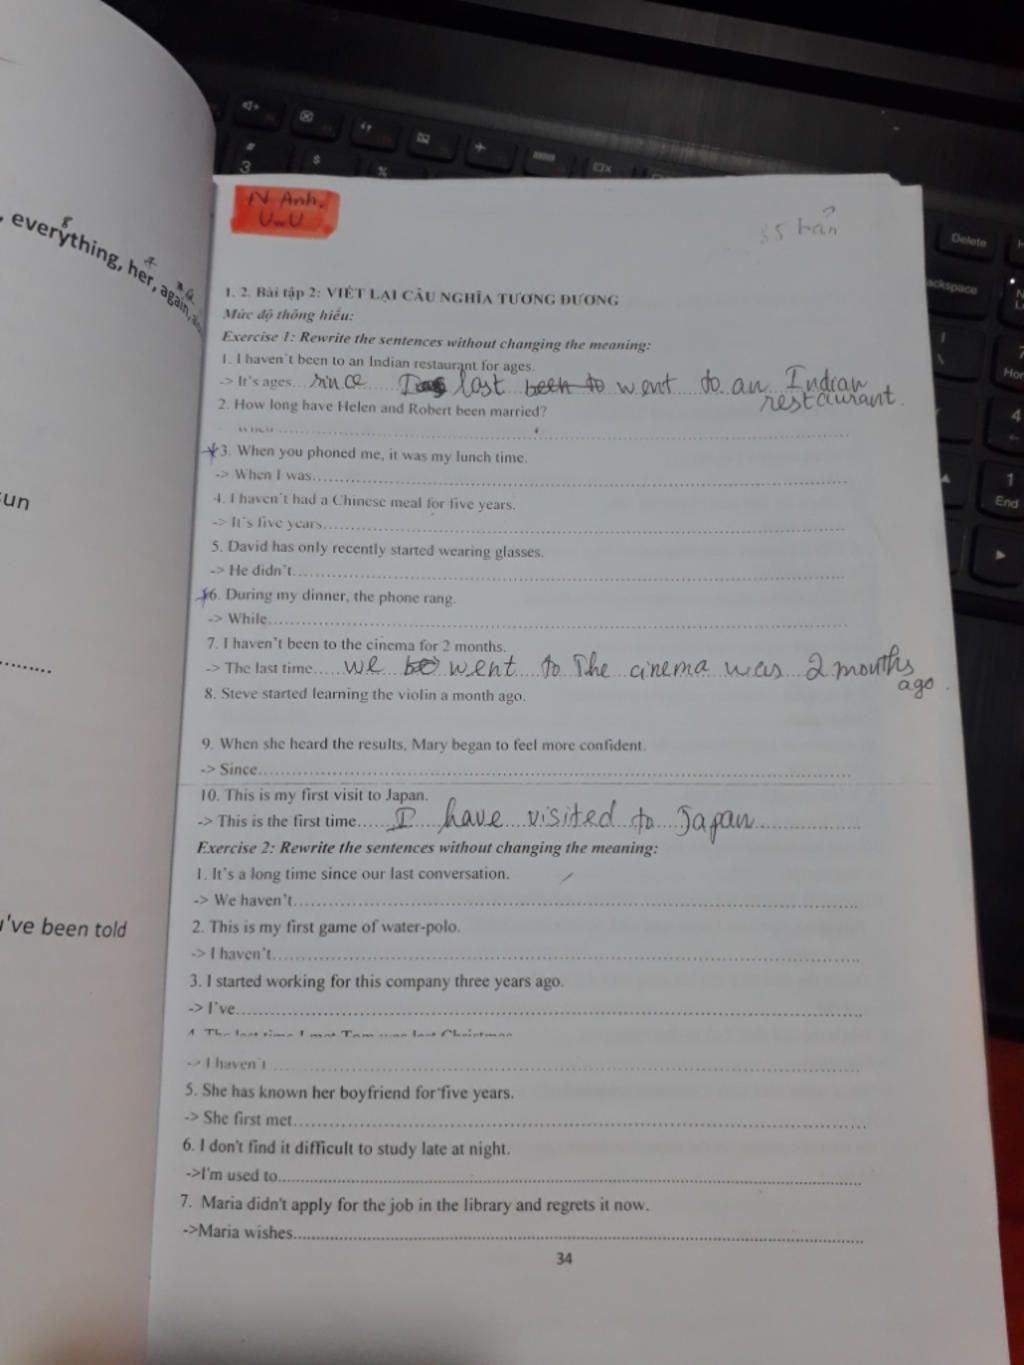 everything, her, again,
sun
u've been told
N Anh.
UwU
35 bản
1. 2. Bài tập 2: VIẾT LẠI CÂU NGHĨA TƯƠNG ĐƯƠNG
Mức độ thông hiểu:
Exercise 1: Rewrite the sentences without changing the meaning:
1. I haven't been to an Indian restaurant for ages.
-> It's ages... since I last been to went to an Indian
restaurant.
2. How long have Helen and Robert been married?
3. When you phoned me, it was my lunch time.
-> When I was
4. I haven't had a Chinese meal for five years.
-> It's five years
5. David has only recently started wearing glasses.
-> He didn't
6. During my dinner, the phone rang.
-> While
7. I haven't been to the cinema for 2 months.
-> The last time we went to The cinema was 2 months
ago.
8. Steve started learning the violin a month ago.
9. When she heard the results, Mary began to feel more confident.
-> Since
10. This is my first visit to Japan.
-> This is the first time I have visited to Japan
Exercise 2: Rewrite the sentences without changing the meaning:
1. It's a long time since our last conversation.
-> We haven't
2. This is my first game of water-polo.
-> I haven't
3. I started working for this company three years ago.
-> I've
4. The last time I met Tom was last Christmas
-> I haven't
5. She has known her boyfriend for five years.
-> She first met
6. I don't find it difficult to study late at night.
->I'm used to
7. Maria didn't apply for the job in the library and regrets it now.
->Maria wishes
34
Delete
ackspace
End